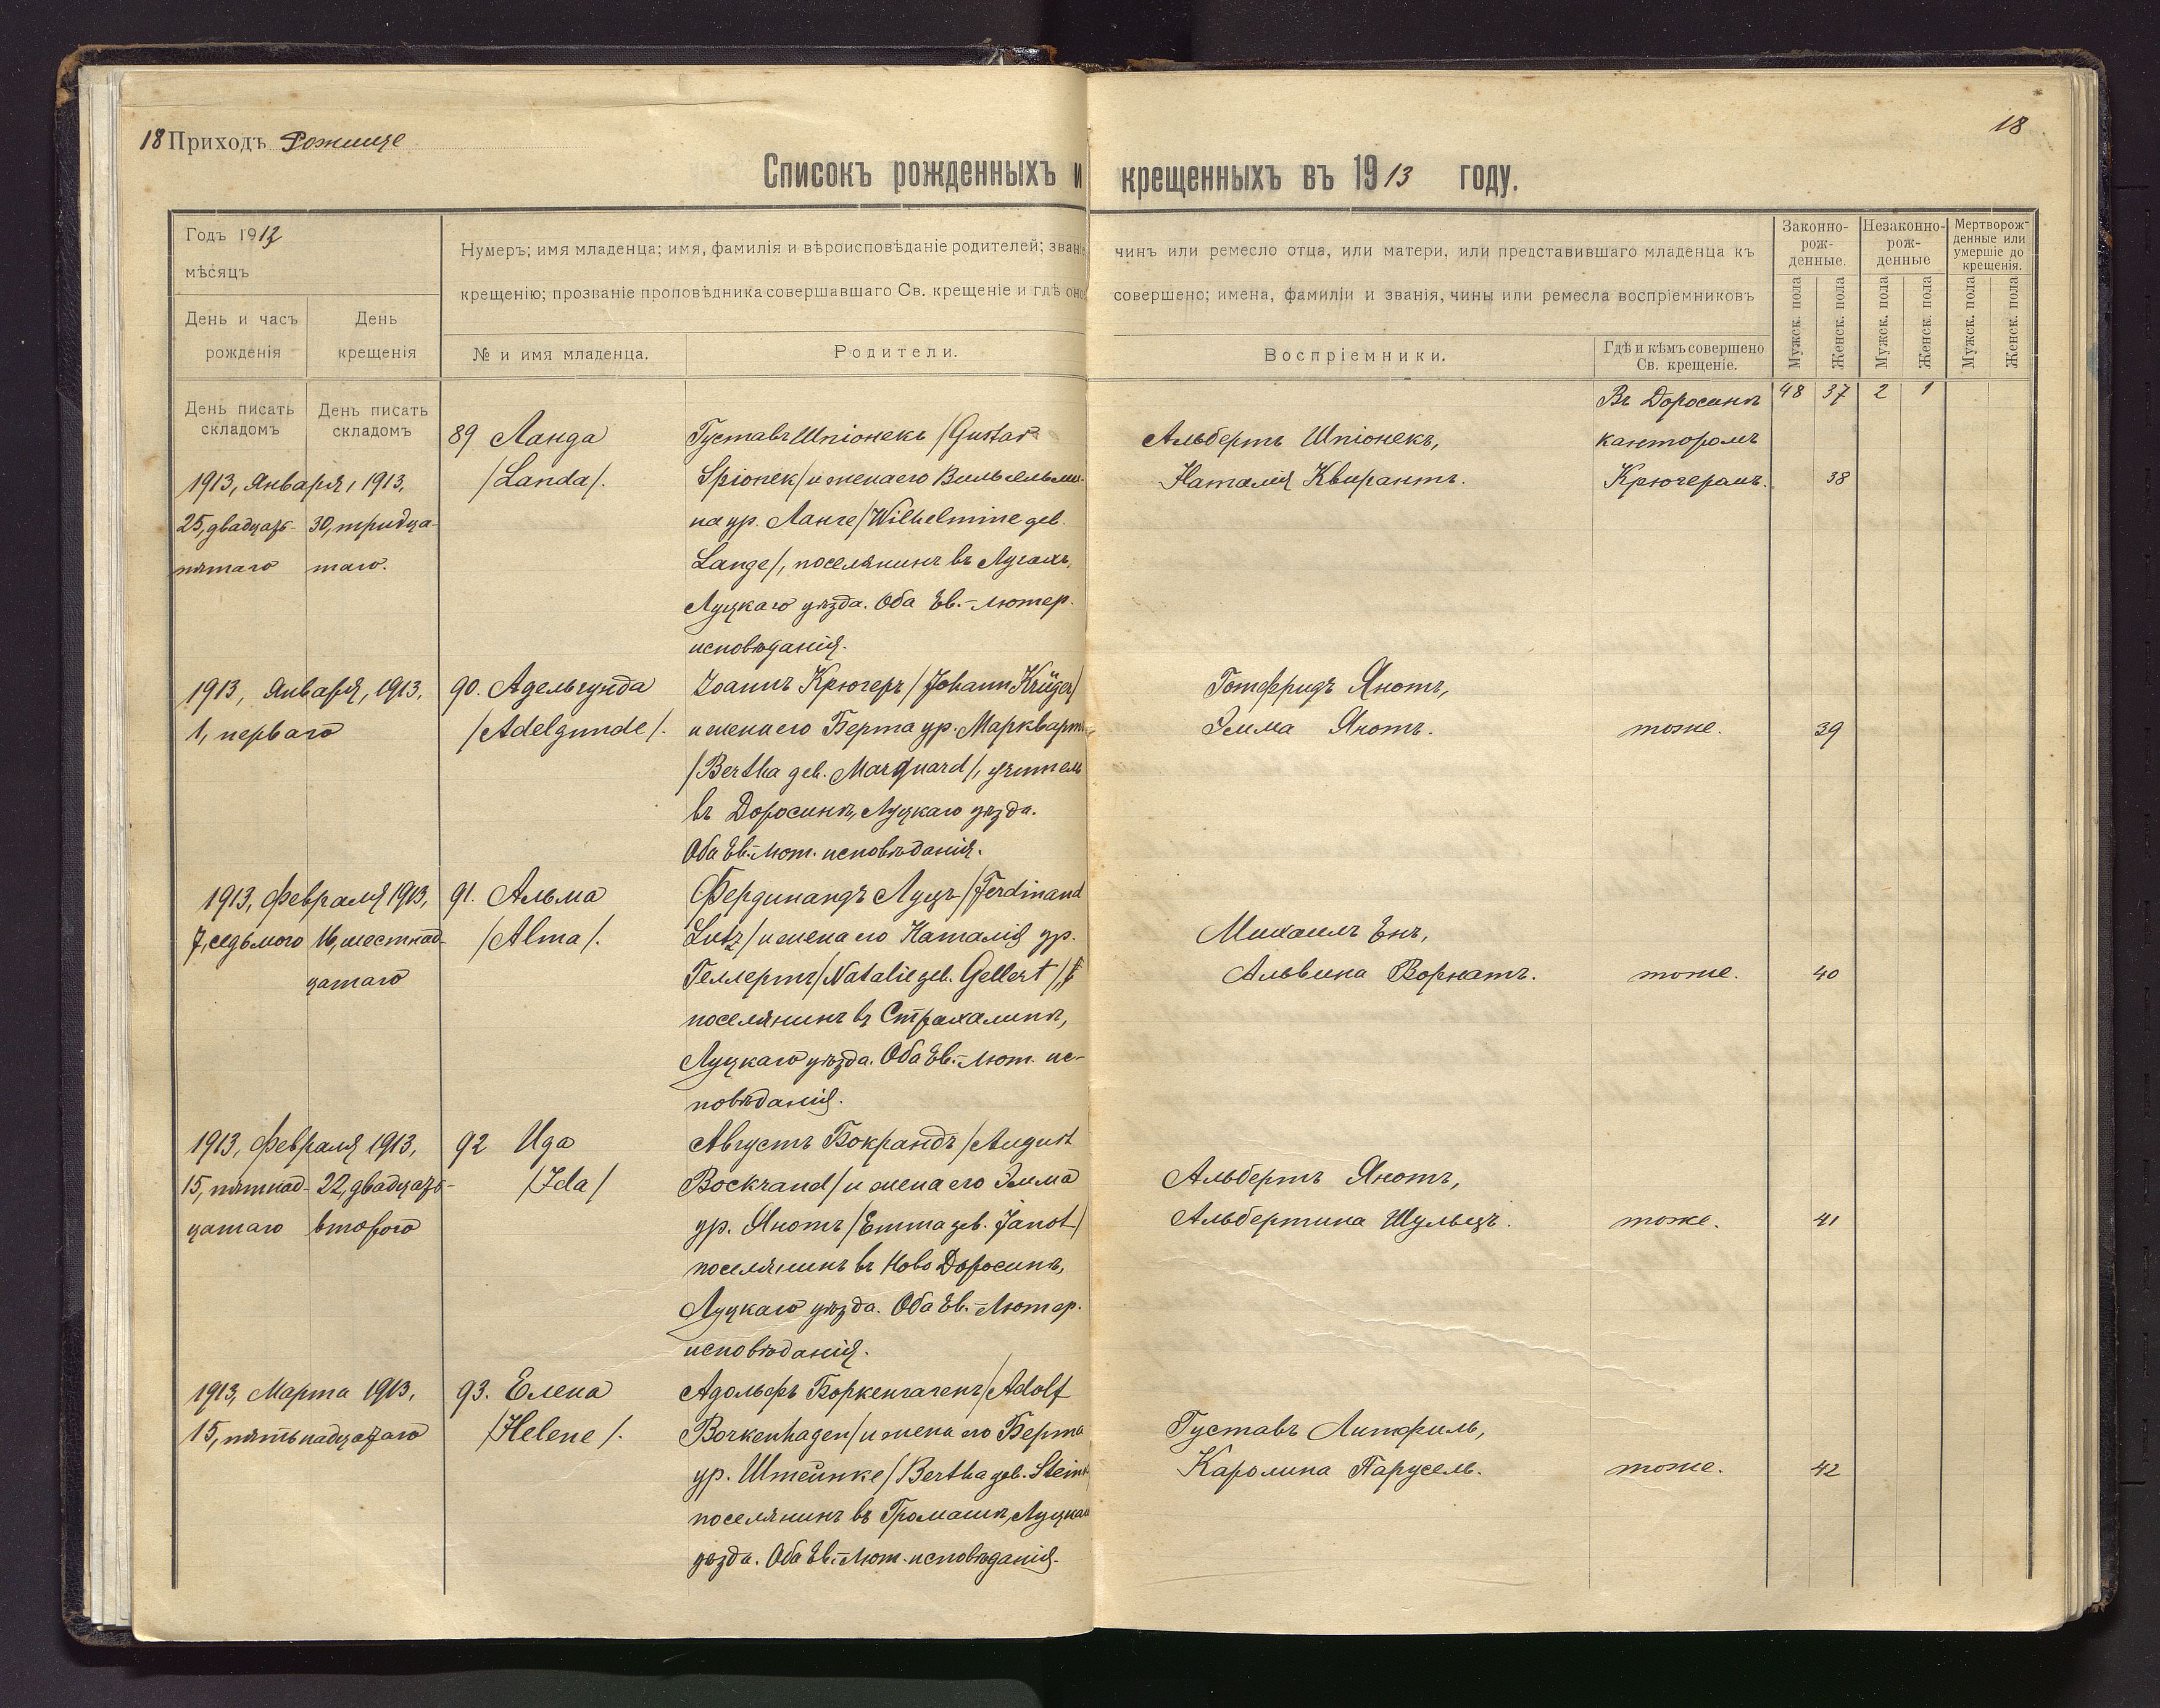 18 Приходъ Рожище
18
Списокъ рожденныхъ и крещенныхъ въ 1913 году.
Годъ 1913
мѣсяцъ
День и часъ рожденія
День крещенія
Нумеръ; имя младенца; имя, фамилія и вѣроисповѣданіе родителей; званіе чинъ или ремесло отца, или матери, или представившаго младенца къ
крещенію; прозваніе проповѣдника совершавшаго Св. крещеніе и гдѣ оно совершено; имена, фамиліи и званія, чины или ремесла воспріемниковъ
№ и имя младенца.
Родители.
Воспріемники.
Гдѣ и кѣмъ совершено
Св. крещеніе.
Законно-
рож-
денные.
Незаконно-
рож-
денные
Мертворож-
денные или
умершіе до
крещенія.
Мужск. пола
Женск. пола
Мужск. пола
Женск. пола
Мужск. пола
Женск. пола
День писать
складомъ
День писать
складомъ
48 37 2 1
1913, Января, 1913,
25, двадцать 30, тридца-
пятаго таго.
89 Ланда
/Landa/.
Густавъ Шпіонекъ /Gustav
Spionek/ и жена его Вильгельми-
на ур. Ланге /Wilhelmine geb.
Lange/, поселянинъ въ Лугахъ,
Луцкаго уѣзда. Оба Ев.-Лютер.
исповѣданія.
Альбертъ Шпіонекъ,
Наталія Квирантъ.
Въ Доросинѣ
канторомъ
Крюгеромъ.
38
1913, Января, 1913,
1, перваго
90. Адельгунда
/Adelgunde/.
Іоаннъ Крюгеръ /Johann Krüger/
и жена его Берта ур. Марквартъ
/Bertha geb. Marquard/, учитель
въ Доросинѣ, Луцкаго уѣзда.
Оба Ев.-Лют. исповѣданія.
Готфридъ Янотъ,
Эмма Янотъ.
тоже.
39
1913, Февраля 1913,
7, седьмого 16, шестнад-
цатаго
91. Альма
/Alma/.
Фердинандъ Луцъ /Ferdinand
Lutz/ и жена его Наталія ур.
Геллертъ /Natalie geb. Gellert/,
поселянинъ въ Страхалинѣ,
Луцкаго уѣзда. Оба Ев.-Лют. ис-
повѣданія.
Михаилъ Енъ,
Альвина Ворнатъ.
тоже.
40
1913, Февраля 1913,
15, пятнад- 22, двадцать-
цатаго второго
92 Ида
/Ida/
Августъ Бокрандъ /August
Bockrand/ и жена его Эмма
ур. Янотъ /Emma geb. Janot/
поселянинъ въ Ново Доросинѣ,
Луцкаго уѣзда. Оба Ев.-Лютер.
исповѣданія.
Альбертъ Янотъ,
Альбертина Шульцъ.
тоже.
41
1913, Марта 1913,
15, пятьнадцатаго
93. Елена
/Helene/.
Адольфъ Боркенгагенъ /Adolf
Borkenhagen/ и жена его Берта
ур. Штейнке /Bertha geb. Steink
поселянинъ въ Громашѣ, Луцкаго
уѣзда. Оба Ев.-Лют. исповѣданія.
Густавъ Литфиль,
Каролина Парусель.
тоже.
42